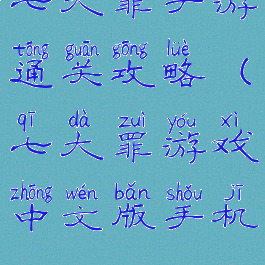 七大罪手游
tōng guān gōng lüè
通关攻略（
qī dà zuì yóu xì
七大罪游戏
zhōng wén bǎn shǒu jī
中文版手机